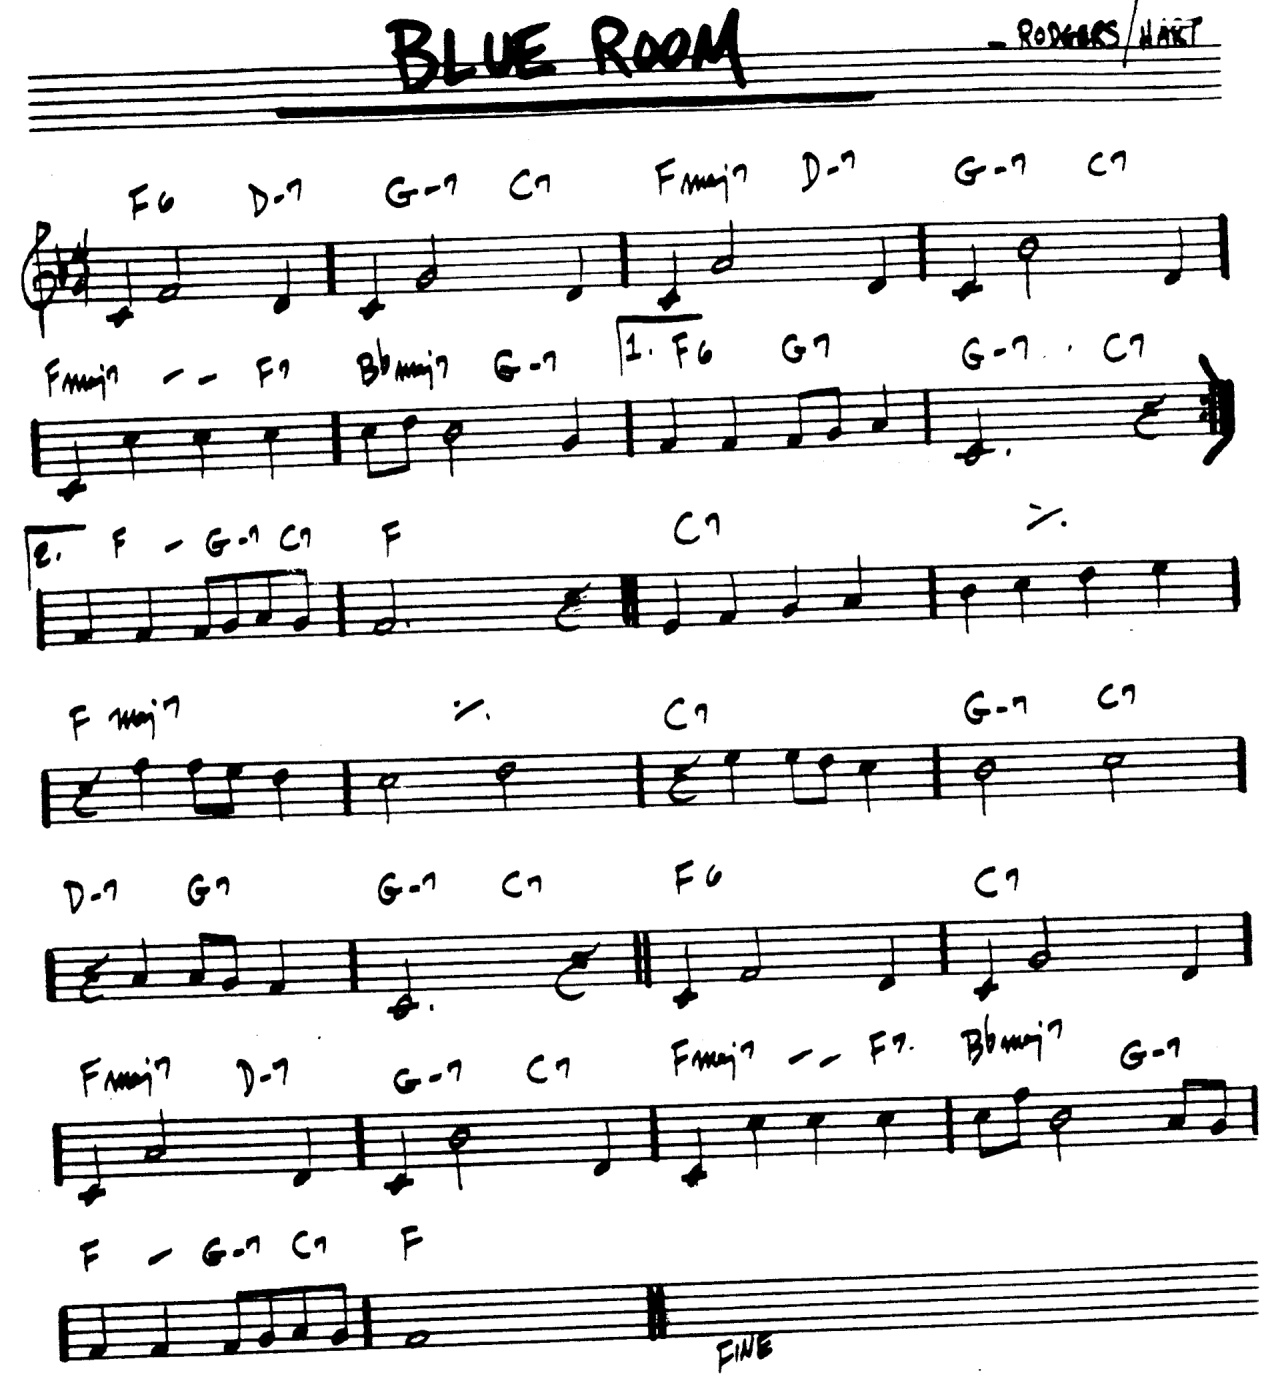 BLUE ROOM
– RODGERS/HART
F6 D-7 G-7 C7 Fmaj7 D-7 G-7 C7
Fmaj7 – – F7 Bbmaj7 G-7 1. F6 G7 G-7 C7
2. F – G-7 C7 F C7 ٪
F maj7 ٪ C7 G-7 C7
D-7 G7 G-7 C7 F6 C7
Fmaj7 D-7 G-7 C7 Fmaj7 – – F7. Bbmaj7 G-7
F – G-7 C7 F
FINE